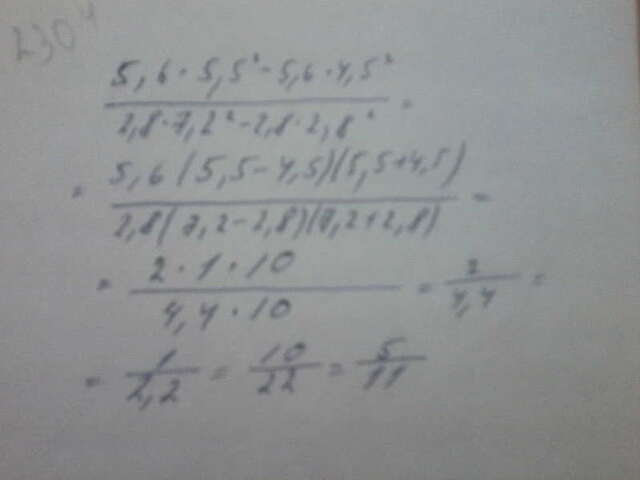 230 4
5,6 · 5,5² - 5,6 · 4,5²
2,8 · 7,2² - 2,8 · 2,8² =
= 5,6 (5,5 - 4,5)(5,5 + 4,5)
2,8 (7,2 - 2,8)(7,2 + 2,8) =
= 2 · 1 · 10
4,4 · 10 = 2/4,4 =
= 1/2,2 = 10/22 = 5/11